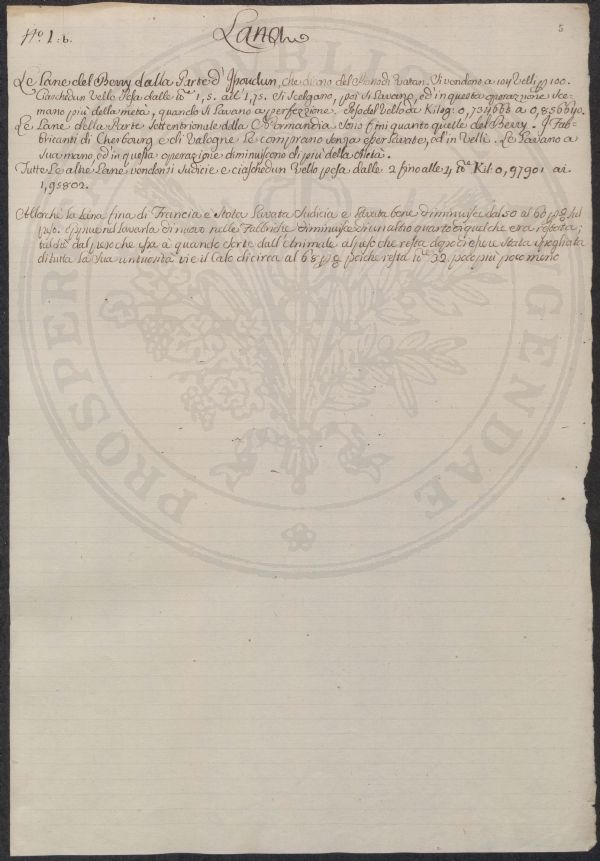 Nº 1: b.
Lane
5
Le Lane del Berry dalla Parte d' Ysoudun, che dicono del Vatan. Si vendono a 104 Velli p 100.
Ciaschedun Vello Pesa dalle 1,5. alle 1,75. Si Scelgano, poi si Lavano, ed in questa operazione Sce-
mano più della metà, quando Si Lavano a perfezione. Peso del Vello da Kilog: 0,734668 a 0,856640.
Le Lane della Parte Settentrionale della Normandia Sono fini quanto quelle del Berry. I Fab-
bricanti di Cherbourg e di Valogne Le comprano Senza esser Lavate, ed in Velli. Le Lavano a
Sua mano, ed in questa operazione diminuiscon di più della Metà.
Tutte Le altre Lane vendonsi Sudicie e ciaschedun Vello pesa dalle 2 fino alle 4 Kil: 0,97901 ai
1,95802.
Allorchè la Lana fina di Francia è Stata Lavata Sudicia e Lavata bene diminuisce dal 50 al 60 p% sul
peso. Eppure nel Lavarla di nuovo nelle Fabbriche diminuisce di un altro quarto di quel che era restata;
talchè dal peso che essa à quando Sorte dall' Animale al peso che resta dopo di che è Stata Spogliata
di tutta la Sua untuosità vi è il Calo di circa al 68 p% poichè resta 32. poco più poco meno
PROSPERITATI PUBLICAE AUGENDAE